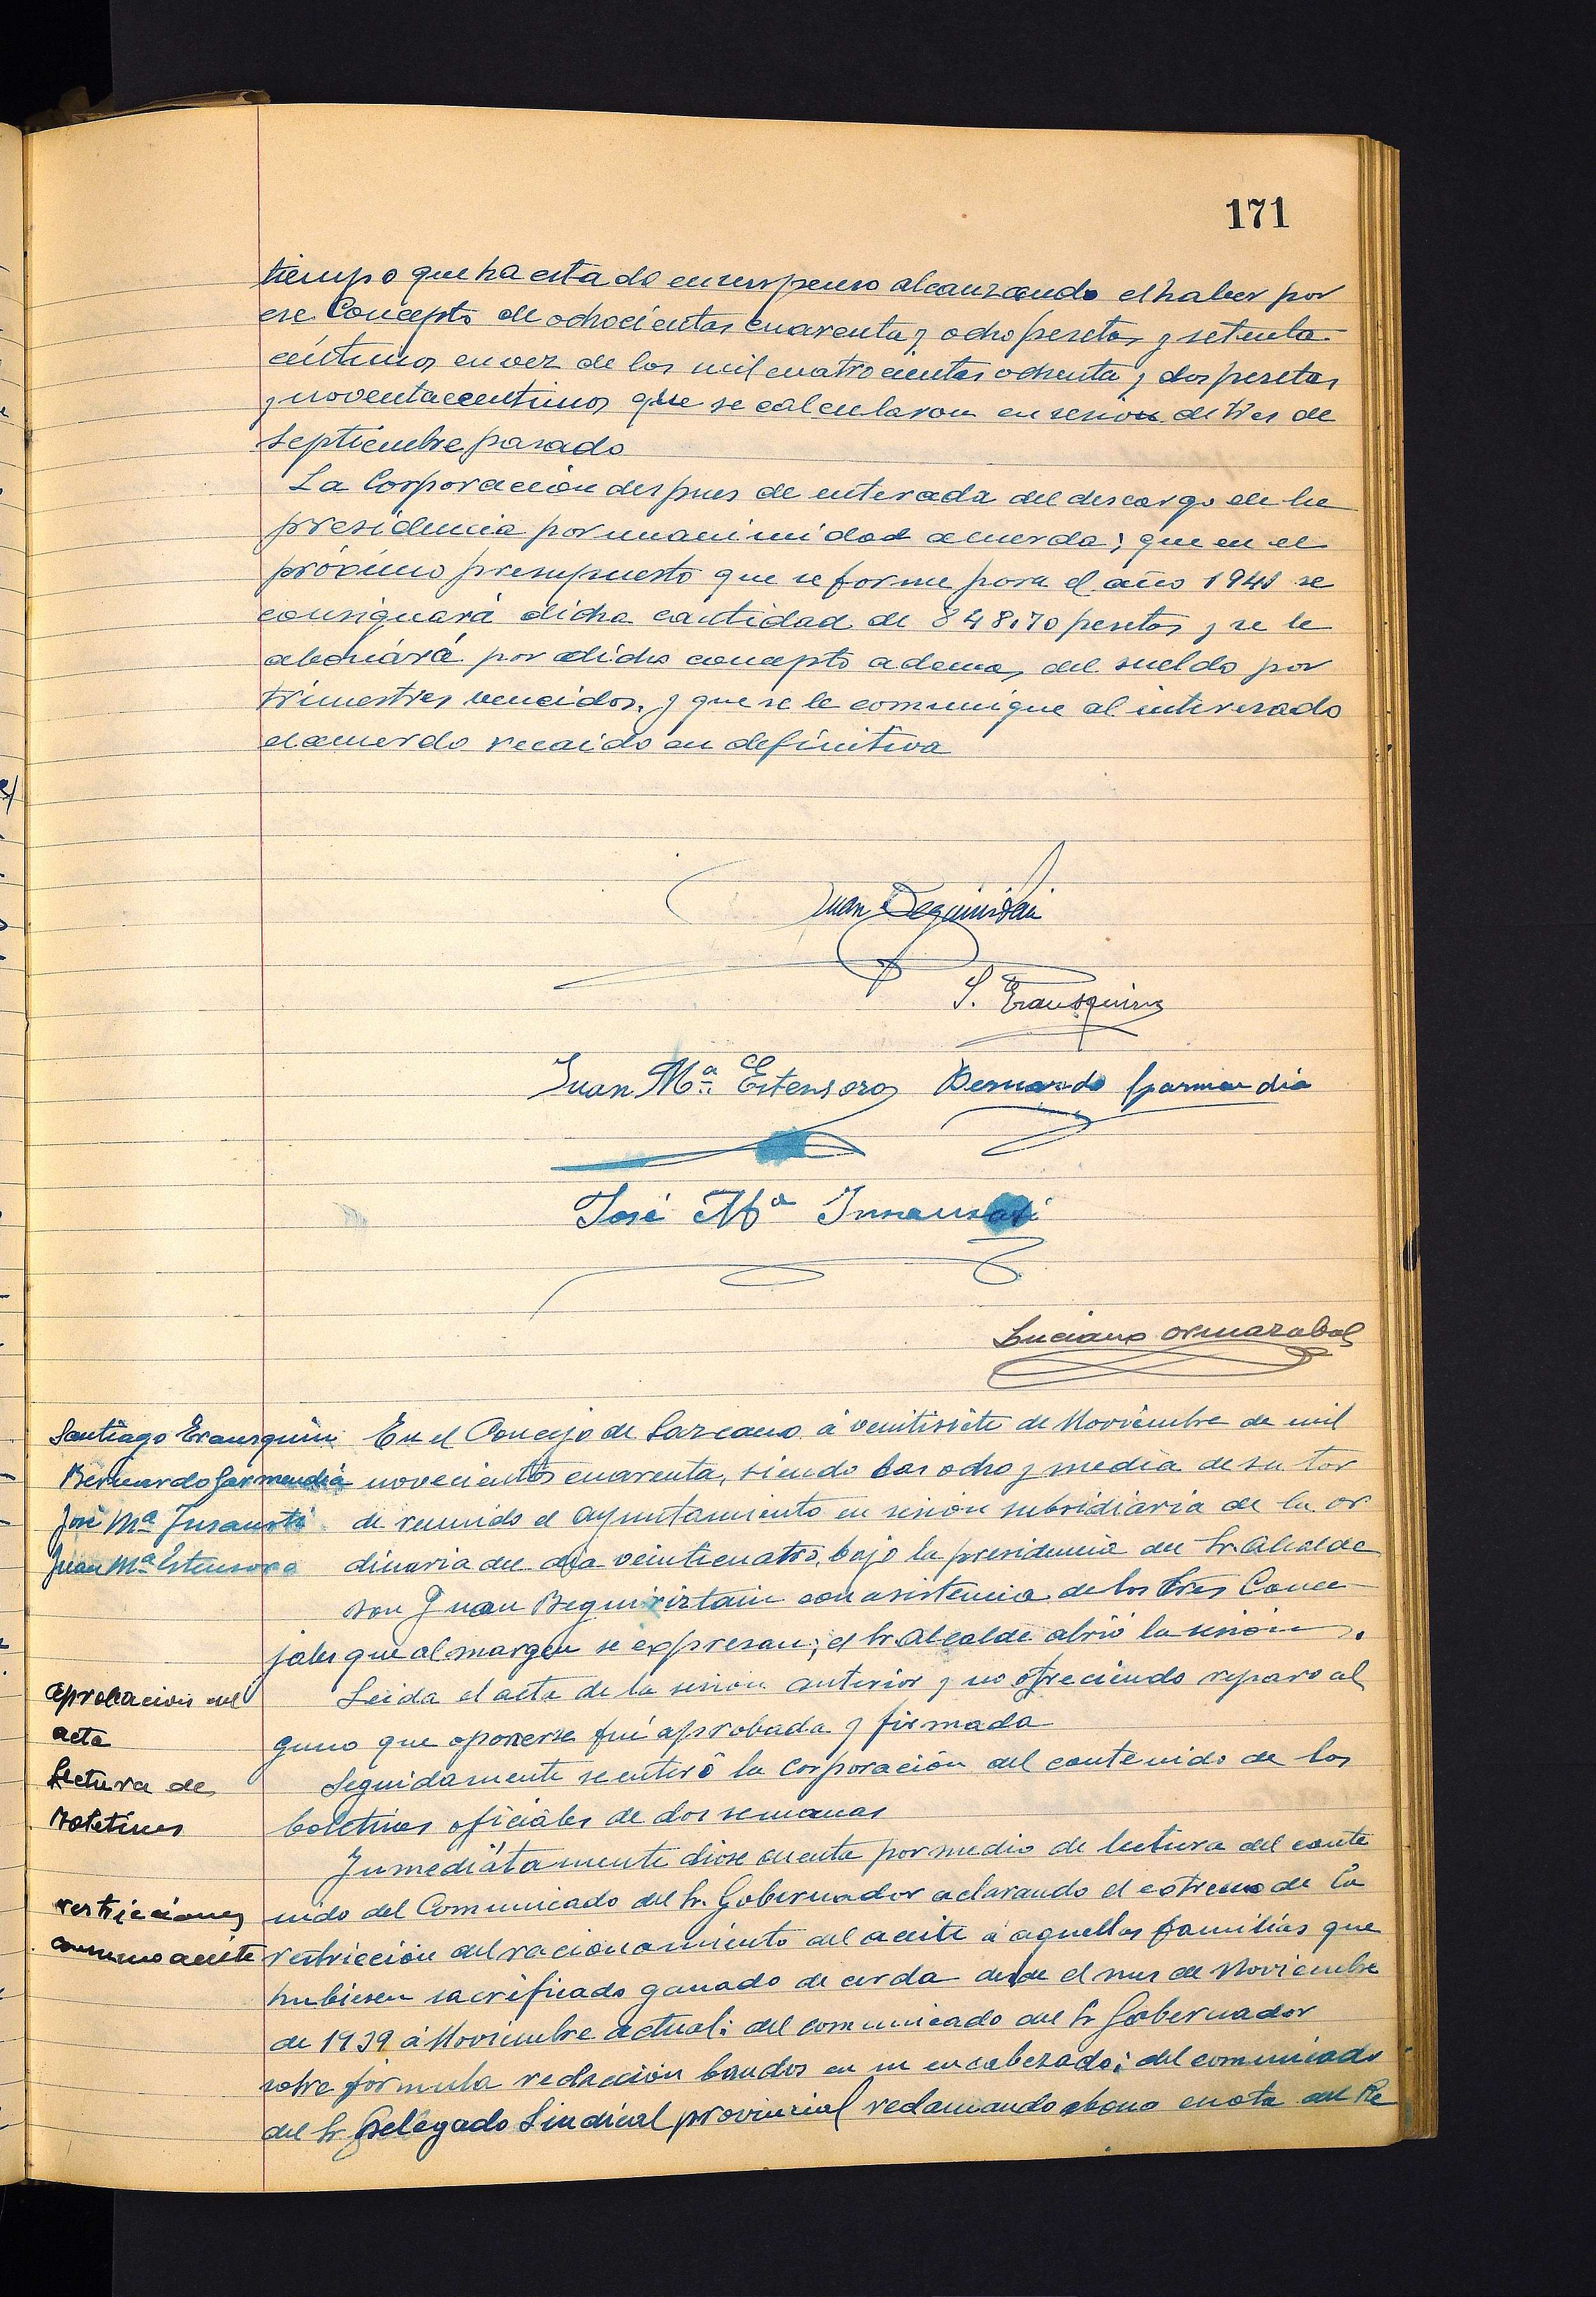 171
tiempo que ha estado en suspenso alcanzando el haber por
ese Concepto de ochocientas cuarenta y ocho pesetas y setenta
céntimos en vez de los mil cuatrocientas ochenta y dos pesetas
y noventa centimos que se calcularon en sesion de tres de
Septiembre pasado
La Corporación despues de enterada del descargo de la
presidencia por unanimidad acuerda; que en el
próximo presupuesto que se forme para el año 1941 se
consignará dicha cantidad de 848,70 pesetas y se le
abonará por dicho concepto ademas del sueldo por
trimestres vencidos, y que se le comunique al interesado
el acuerdo recaido en definitiva
Juan Beguiristain
S. Erausquin
Juan Mª Estensoro Bernardo Garmendia
José Mª Insausti
Luciano Ormazabal
Santiago Erausquin
Bernardo Garmendia
José Mª Insausti
Juan Mª Estensoro
En el Concejo de Lazcano á veintisiete de Noviembre de mil
novecientos cuarenta, siendo las ocho y media de su tar
de reunido el Ayuntamiento en sesión subsidiaria de la or
dinaria del dia veinticuatro, bajo la presidencia del Sr. Alcalde
Don Juan Beguiristain con asistencia de los tres Conce
jales que al margen se expresan; el Sr. Alcalde abrió la sesión.
aprobacion del
acta
Leida el acta de la sesion anterior y no ofreciendo reparo al
guno que oponerse fué aprobada y firmada
Lectura de
Boletines
Seguidamente se enteró la Corporación del contenido de los
boletines oficiales de dos semanas
restricciones
consumo aceite
Inmediátamente diose cuenta por medio de lectura del conte
nido del Comunicado del Sr. Gobernador aclarando el estremo de la
restricción del racionamiento del aceite á aquellas familias que
hubiesen sacrificado ganado de cerda desde el mes de Noviembre
de 1939 á Noviembre actual: del comunicado del Sr Gobernador
sobre fórmula redacción bandos en su encabezado; del comunicado
del Sr Delegado Sindical provincial reclamando abono cuota del Re